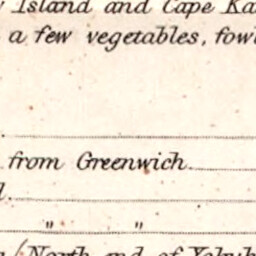 Island and Cape
a few vegetables, fowl
from Greenwich
" "
North end of